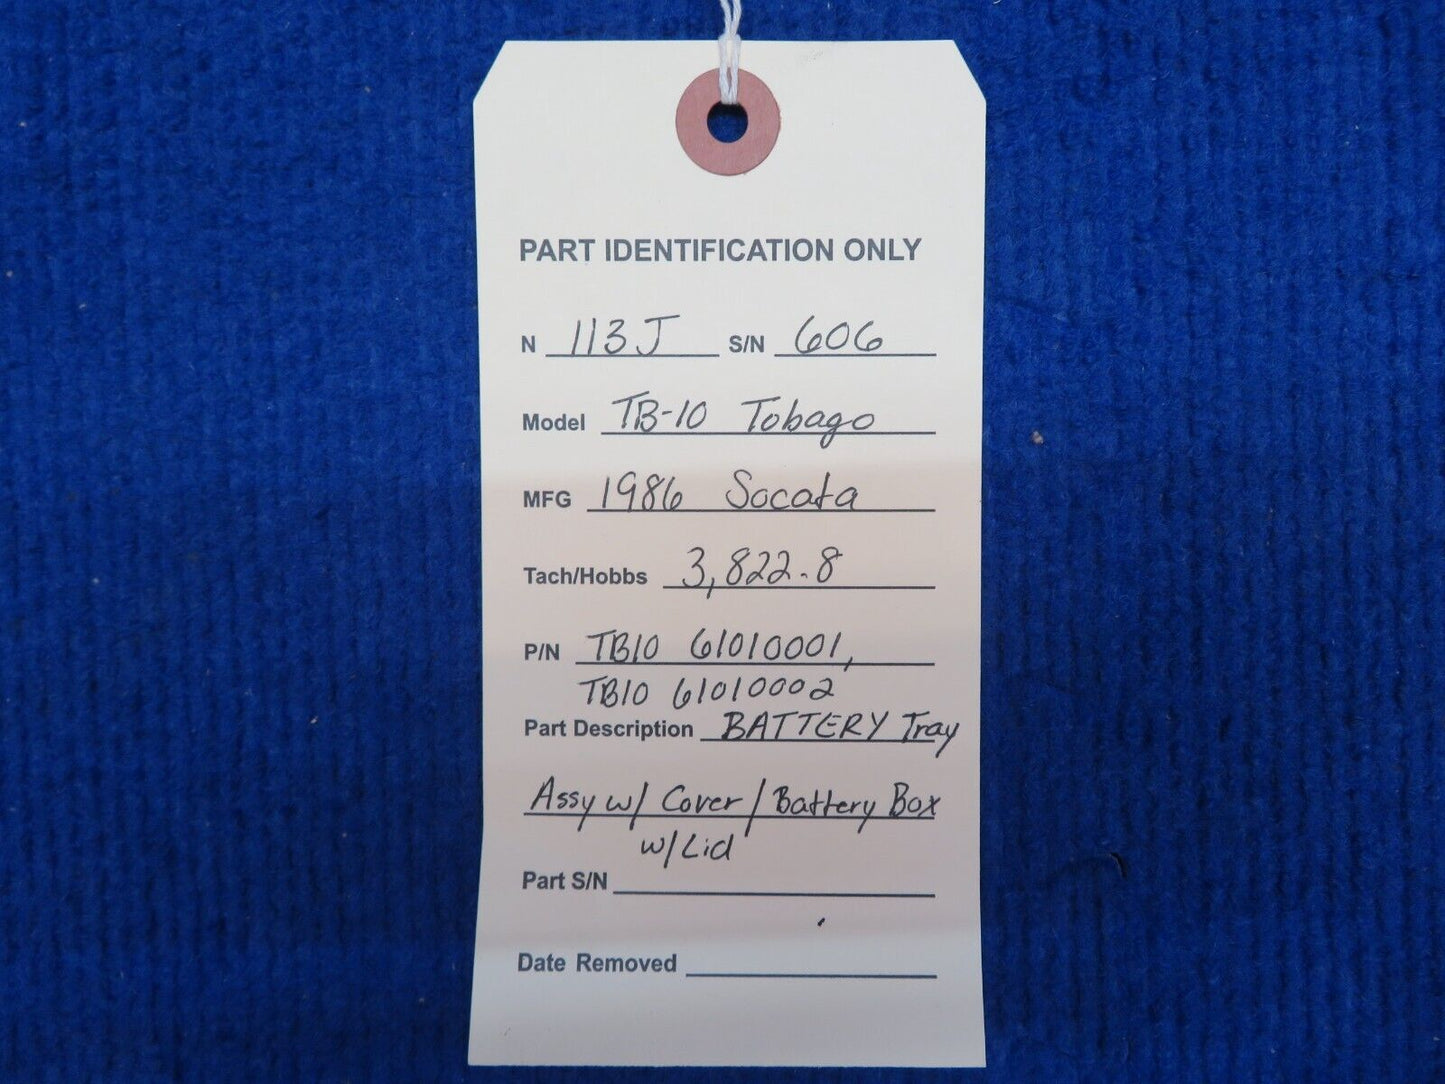 PART IDENTIFICATION ONLY
N 113J S/N 606
Model TB-10 Tobago
MFG 1986 Socata
Tach/Hobbs 3,822.8
P/N TB10 61010001,
TB10 61010002
Part Description BATTERY Tray
Assy w/ Cover / Battery Box
w/ Lid
Part S/N
Date Removed